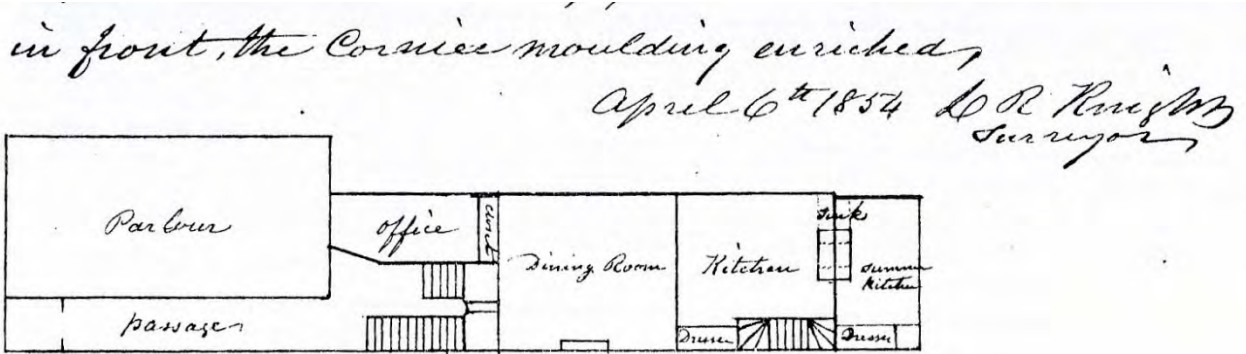 in front, the Cornice moulding enriched,
April 6th 1854 L R Knight
Surveyor
Parlour
office
sink
Dining Room
Kitchen
summer
kitchen
passage
Dresser
Dresser